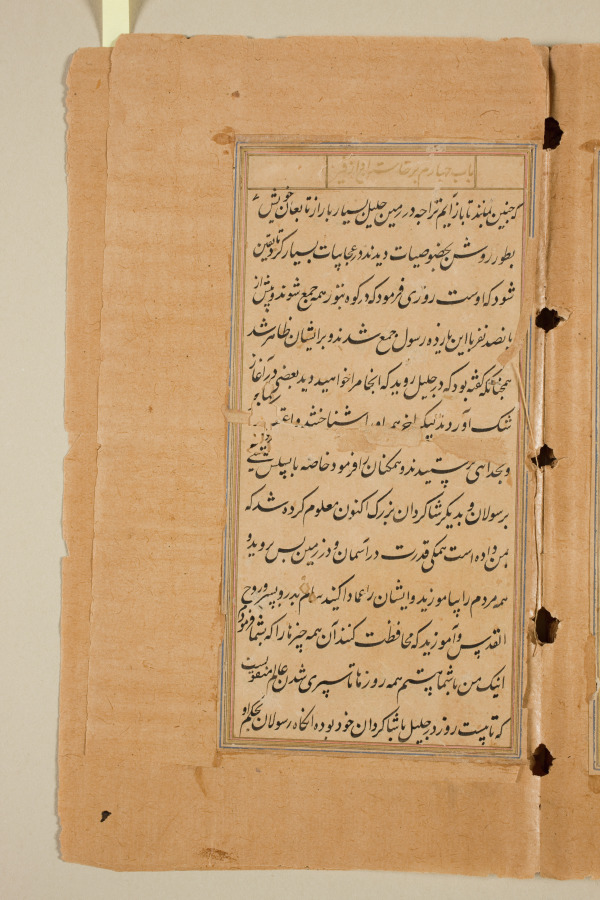 باب چهارم برخاستن او از قبر
که چنین بلند تا باز آیم تراجه در زمین جلیل بسیار بار از تابعان خویش
بطور روشن بخصوصیات دیدند در عجایبات بسیار کرد تا یقین
شود که اوست روزی فرمود که در کوه تبور همه جمع شوند و پیش از
پانصد نفر با این یازده رسول جمع شدند و برایشان ظاهر شد
همچنانکه گفته بود که در جلیل روید که انجا مرا خواهید دید بعضی در آغاز
شک آوردند لیکن اخر همه او را شناختند و
و بخدایی پرستیدند و همکنان را فرمود خاصه با پیلس یعنی
بر رسولان و بدیگر شاکردان بزرک اکنون معلوم کرده شد که
بمن داده است همکی قدرت در آسمان و در زمین پس بروید و
همه مردم را بیاموزید و ایشان را عماد کنید بنام پدر و پسر و روح
القدس و آموزید که محافظت کنند آن همه چیزها را که بشما فرمودم
اینک من با شما هستم همه روزها تا سپری شدن عالم منقولست
که تا بیست روز در جلیل با شاکردان خود بوده انکاه رسولان بحکم او